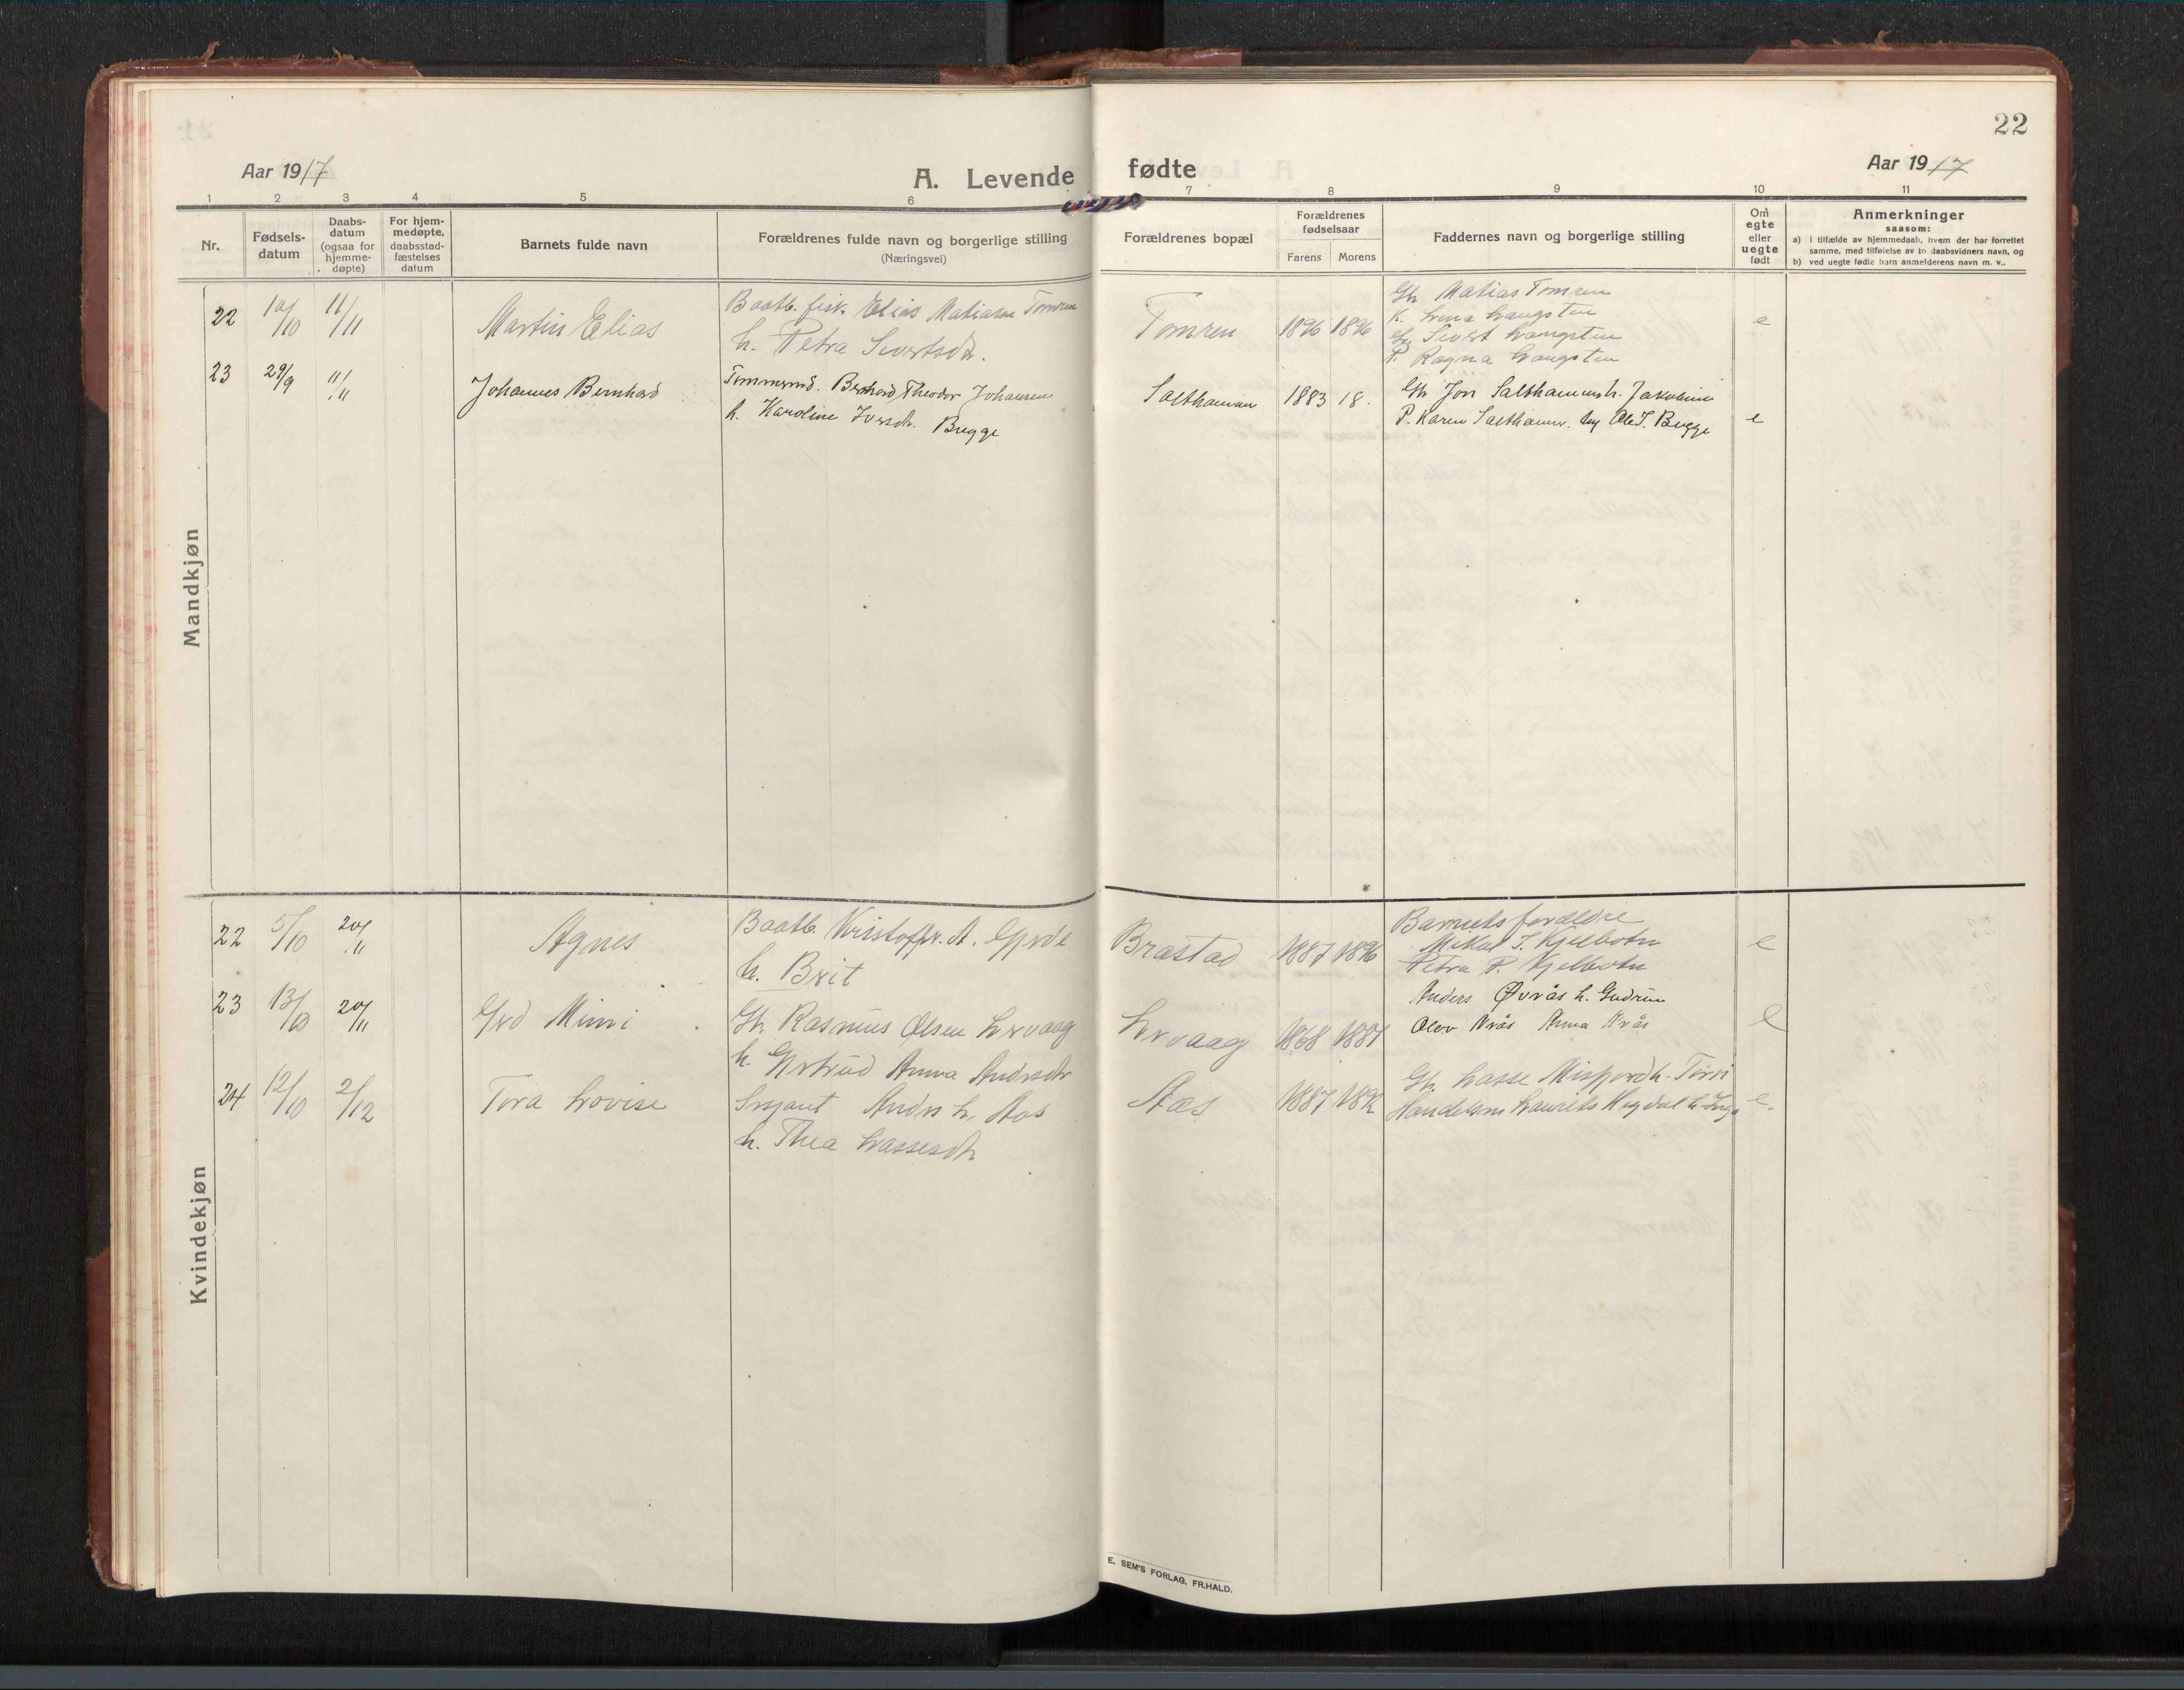 22
Aar 1917
A. Levende fødte
Aar 1917
1 2 3 4 5 6 7 8 9 10 11
Nr.
Fødsels-
datum
Daabs-
datum
(ogsaa for
hjemme-
døpte)
For hjem-
medøpte,
daabsstad-
fæstelses
datum
Barnets fulde navn
Forældrenes fulde navn og borgerlige stilling
(Næringsvei)
Forældrenes bopæl
Forældrenes
fødselsaar
Farens Morens
Faddernes navn og borgerlige stilling
Om
egte
eller
uegte
født
Anmerkninger
saasom:
a) i tilfælde av hjemmedaab, hvem der har forrettet
samme, med tilføielse av to daabsvidners navn, og
b) ved uegte fødte barn anmelderens navn m. v..
Mandkjøn
22 10/10 11/11 Martin Elias
Baatb. fisk. Elias Matiasen Tomren
h. Petra Sivertsdr.
Tomren 1896 1896
Gb. Matias Tomren
K. Lina Langsten
Gb. Sivert Langsten
P. Ragna Langsten
e
23 29/9 11/11 Johannes Bernhard
Tømmermd. Bernhard Theodor Johansen
h. Karoline Iversdr. Bugge
Salthammer 1883 18.
Gb. Jon Salthammer h. Jakobine
P. Karen Salthammer. Ug Ole I. Bugge
e
Kvindekjøn
22 5/10 20/11 Agnes
Baatb. Kristoffer A. Gjerde
h. Brit
Brastad 1887 1896
Barnets forældre
Mikal I. Kjelbotn
Petra P. Kjelbotn
e
23 13/10 20/11 Gyd Mimi
Gb. Rasmus Olsen Lervaag
h. Gjertrud Anna Andrsdtr
Lervaag 1868 1881
Anders Øvrås h. Gudrun
Olov Vrås Anna Vrås
e
24 12/10 2/12 Tora Lovise
Sersjant Andrs L. Aas
h. Thea Lassesdtr
Aas 1887 1892
Gb. Lasse Misfjord h. Tørri
Handelsm Laurits Hagdal h. Inga
e.
E. SEM'S FORLAG, FR.HALD.